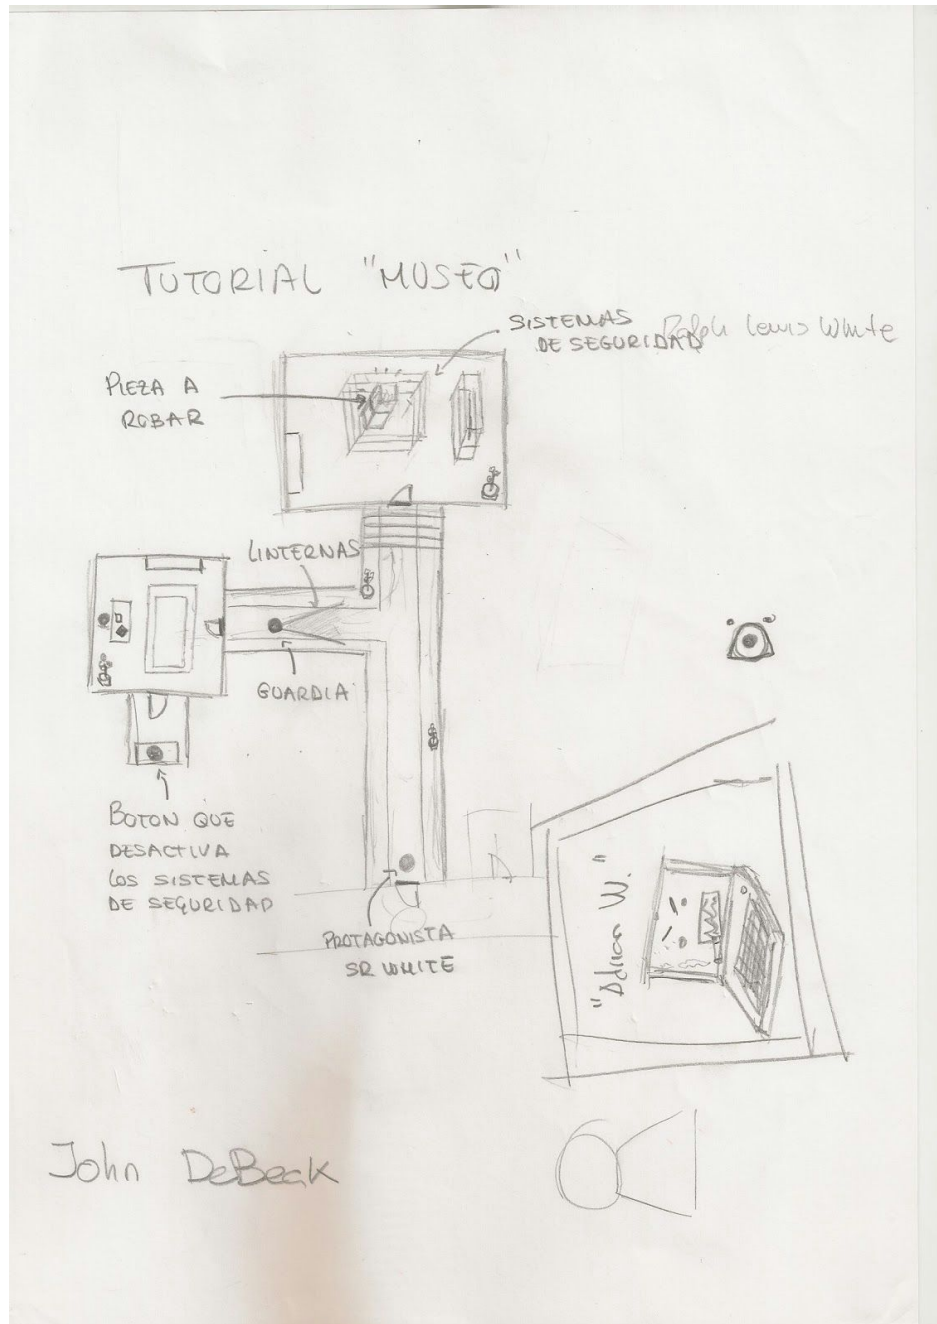 TUTORIAL "MUSEO"
SISTEMAS
DE SEGURIDAD
Ralph Lewis White
PIEZA A
ROBAR
LINTERNAS
GUARDIA
BOTON QUE
DESACTIVA
LOS SISTEMAS
DE SEGURIDAD
PROTAGONISTA
SR WHITE
W."
John DeBeck